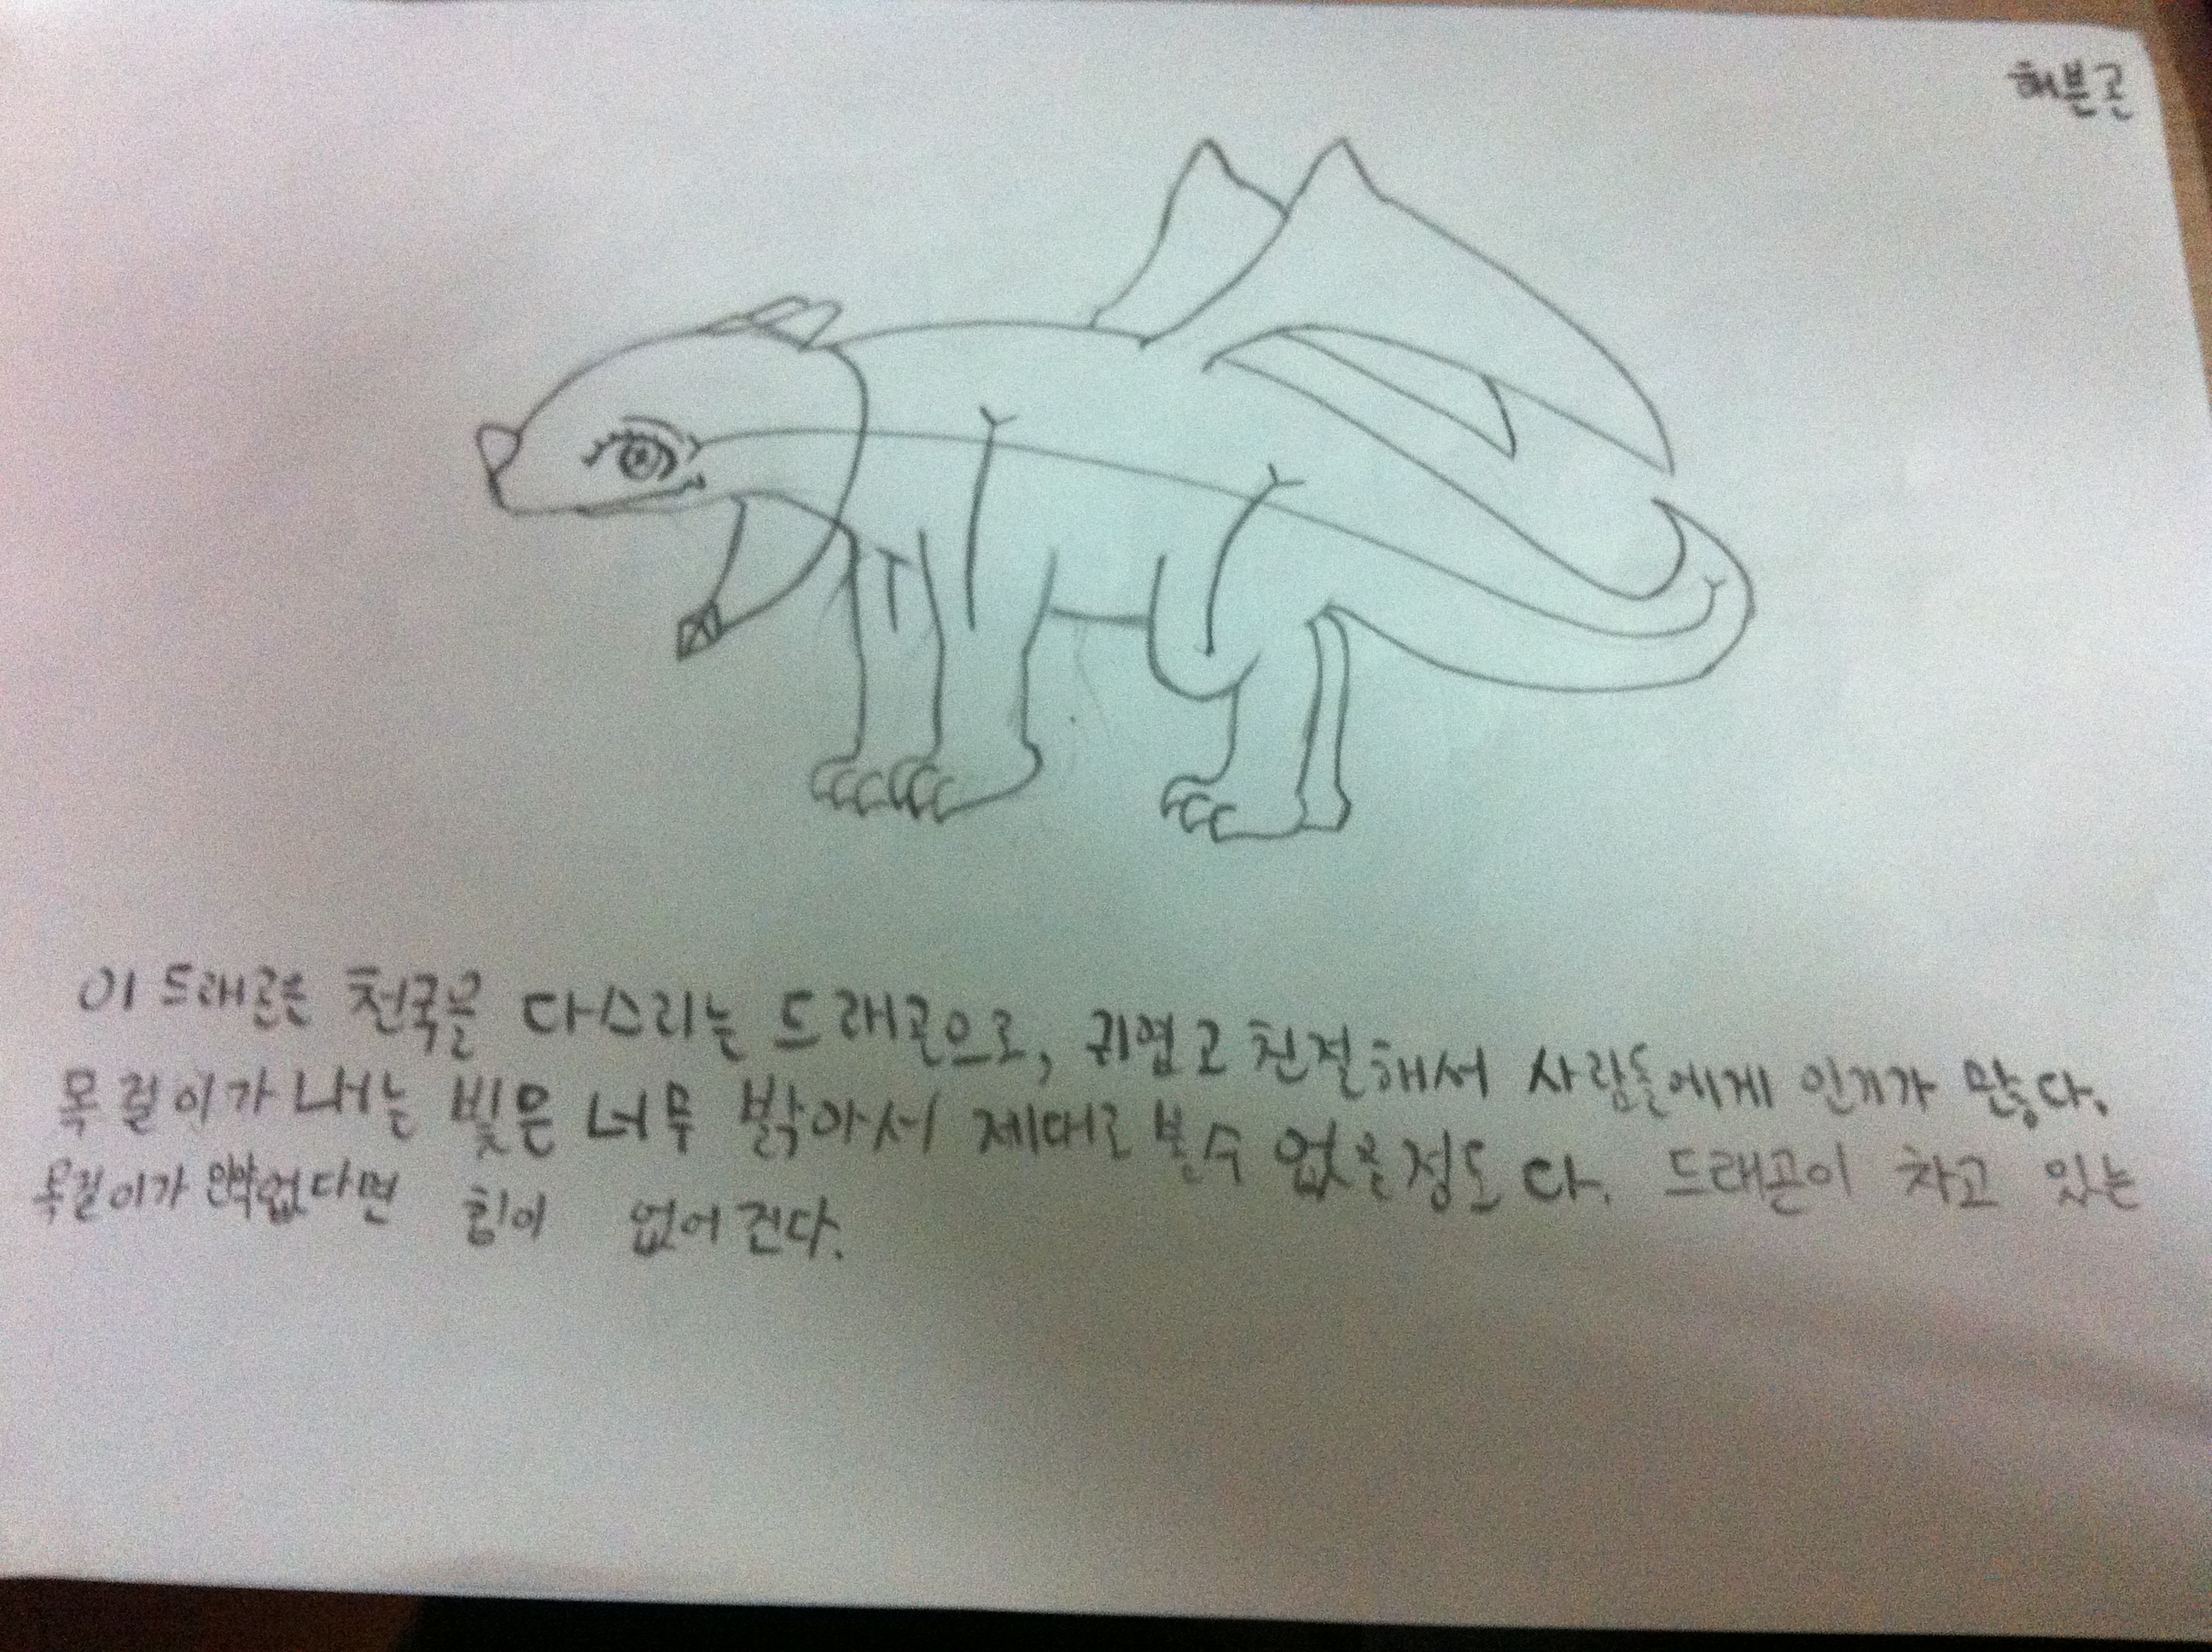 해븐곤
이 드래곤은 천국을 다스리는 드래곤으로, 귀엽고 친절해서 사람들에게 인기가 많다.
목걸이가 내는 빛은 너무 밝아서 제대로 볼 수 없을 정도다. 드래곤이 차고 있는
목걸이가 없다면 힘이 없어진다.